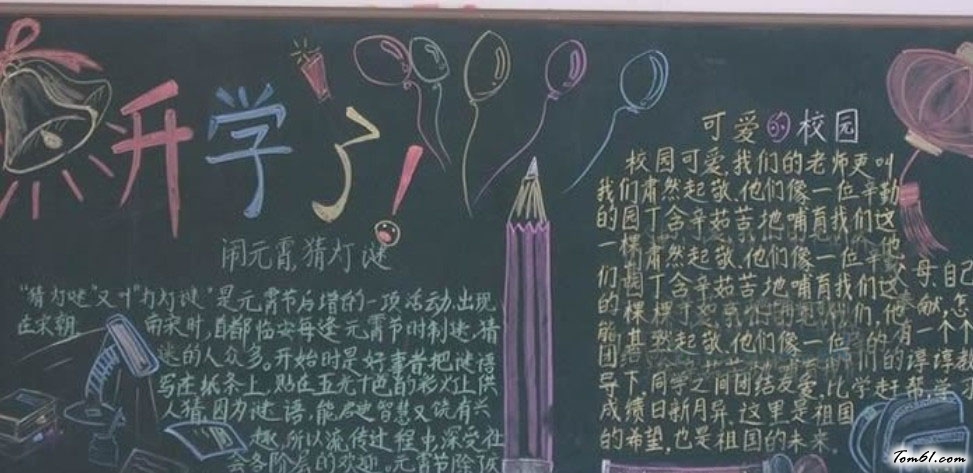 开学了!
闹元霄,猜灯谜
"猜灯谜"又叫"打灯谜"是元霄节后增的一项活动,出现
在宋朝。南宋时,首都临安每逢元霄节时制迷,猜
迷的人众多。开始时是好事者把谜语
写在纸条上,贴在五光十色的彩灯上供
人猜,因为谜语,能启迪智慧又饶有兴
趣,所以流传过程中,深受社
会各阶
元霄节除
可爱的校园
校园可爱,我们的老师更叫
我们肃然起敬,他们像一位辛勤
的园丁含辛茹苦地哺育我们这
一棵肃然起敬,他们像一位辛
们园丁含辛茹苦地哺育我们这
的棵
能然起敬,他们像一位
团的谆谆教
导下,同学之间团结友爱,比学赶帮,学
成绩日新月异,这里是祖国
的希望,也是祖国的未来
父母,自己
献,怎
有一个个
Tom61.com